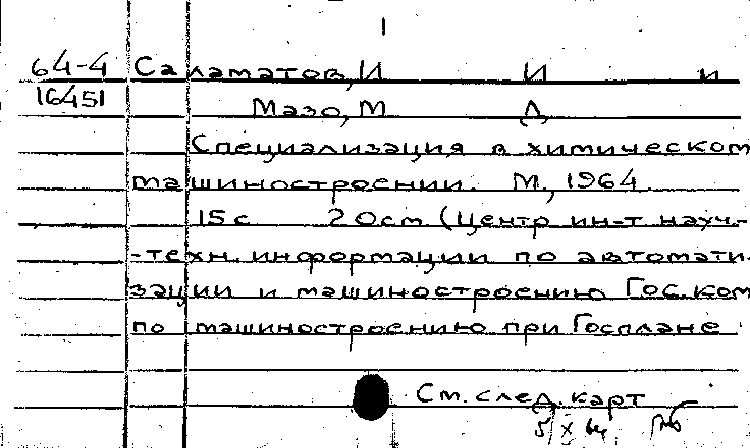 1
64-4 Саламатов, И И и
16451 Мазо, М Д
Специализация в химическом
машиностроении. М., 1964.
15 с 20 см (Центр ин-т науч.-
-техн. информации по автомати-
зации и машиностроению Гос. ком
по машиностроению при Госплане
См. след. карт
5/X 64.